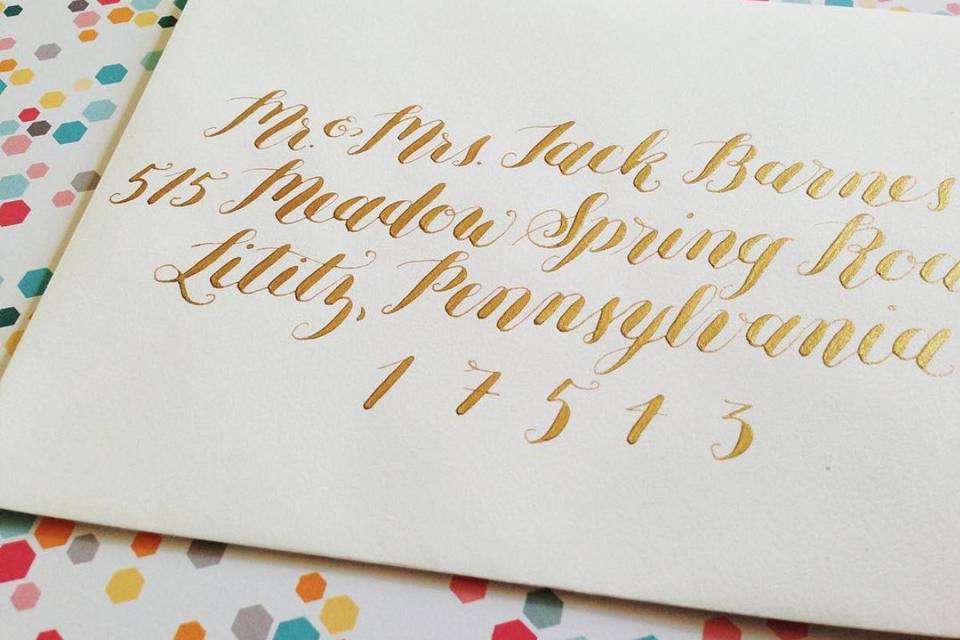 Mr. & Mrs. Jack Barnes
515 Meadow Spring Roa
Lititz, Pennsylvania
17513